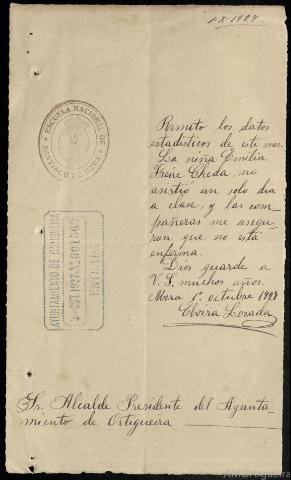 1-X-1927
ESCUELA NACIONAL DE
SANTIAGO DE MERA
Remito los datos
estadísticos de este mes.
La niña Emilia
Freire Cheda, no
asistió un solo día
a clase, y las com
pañeras me asegu-
ran que no está
enferma.
Dios guarde a
V. S. muchos años.
Mera 1º octubre 1927
Elvira Losada
AYUNTAMIENTO DE ORTIGUEIRA
OCT 1927
ENTRADA
Sr. Alcalde Presidente del Ayunta
miento de Ortigueira